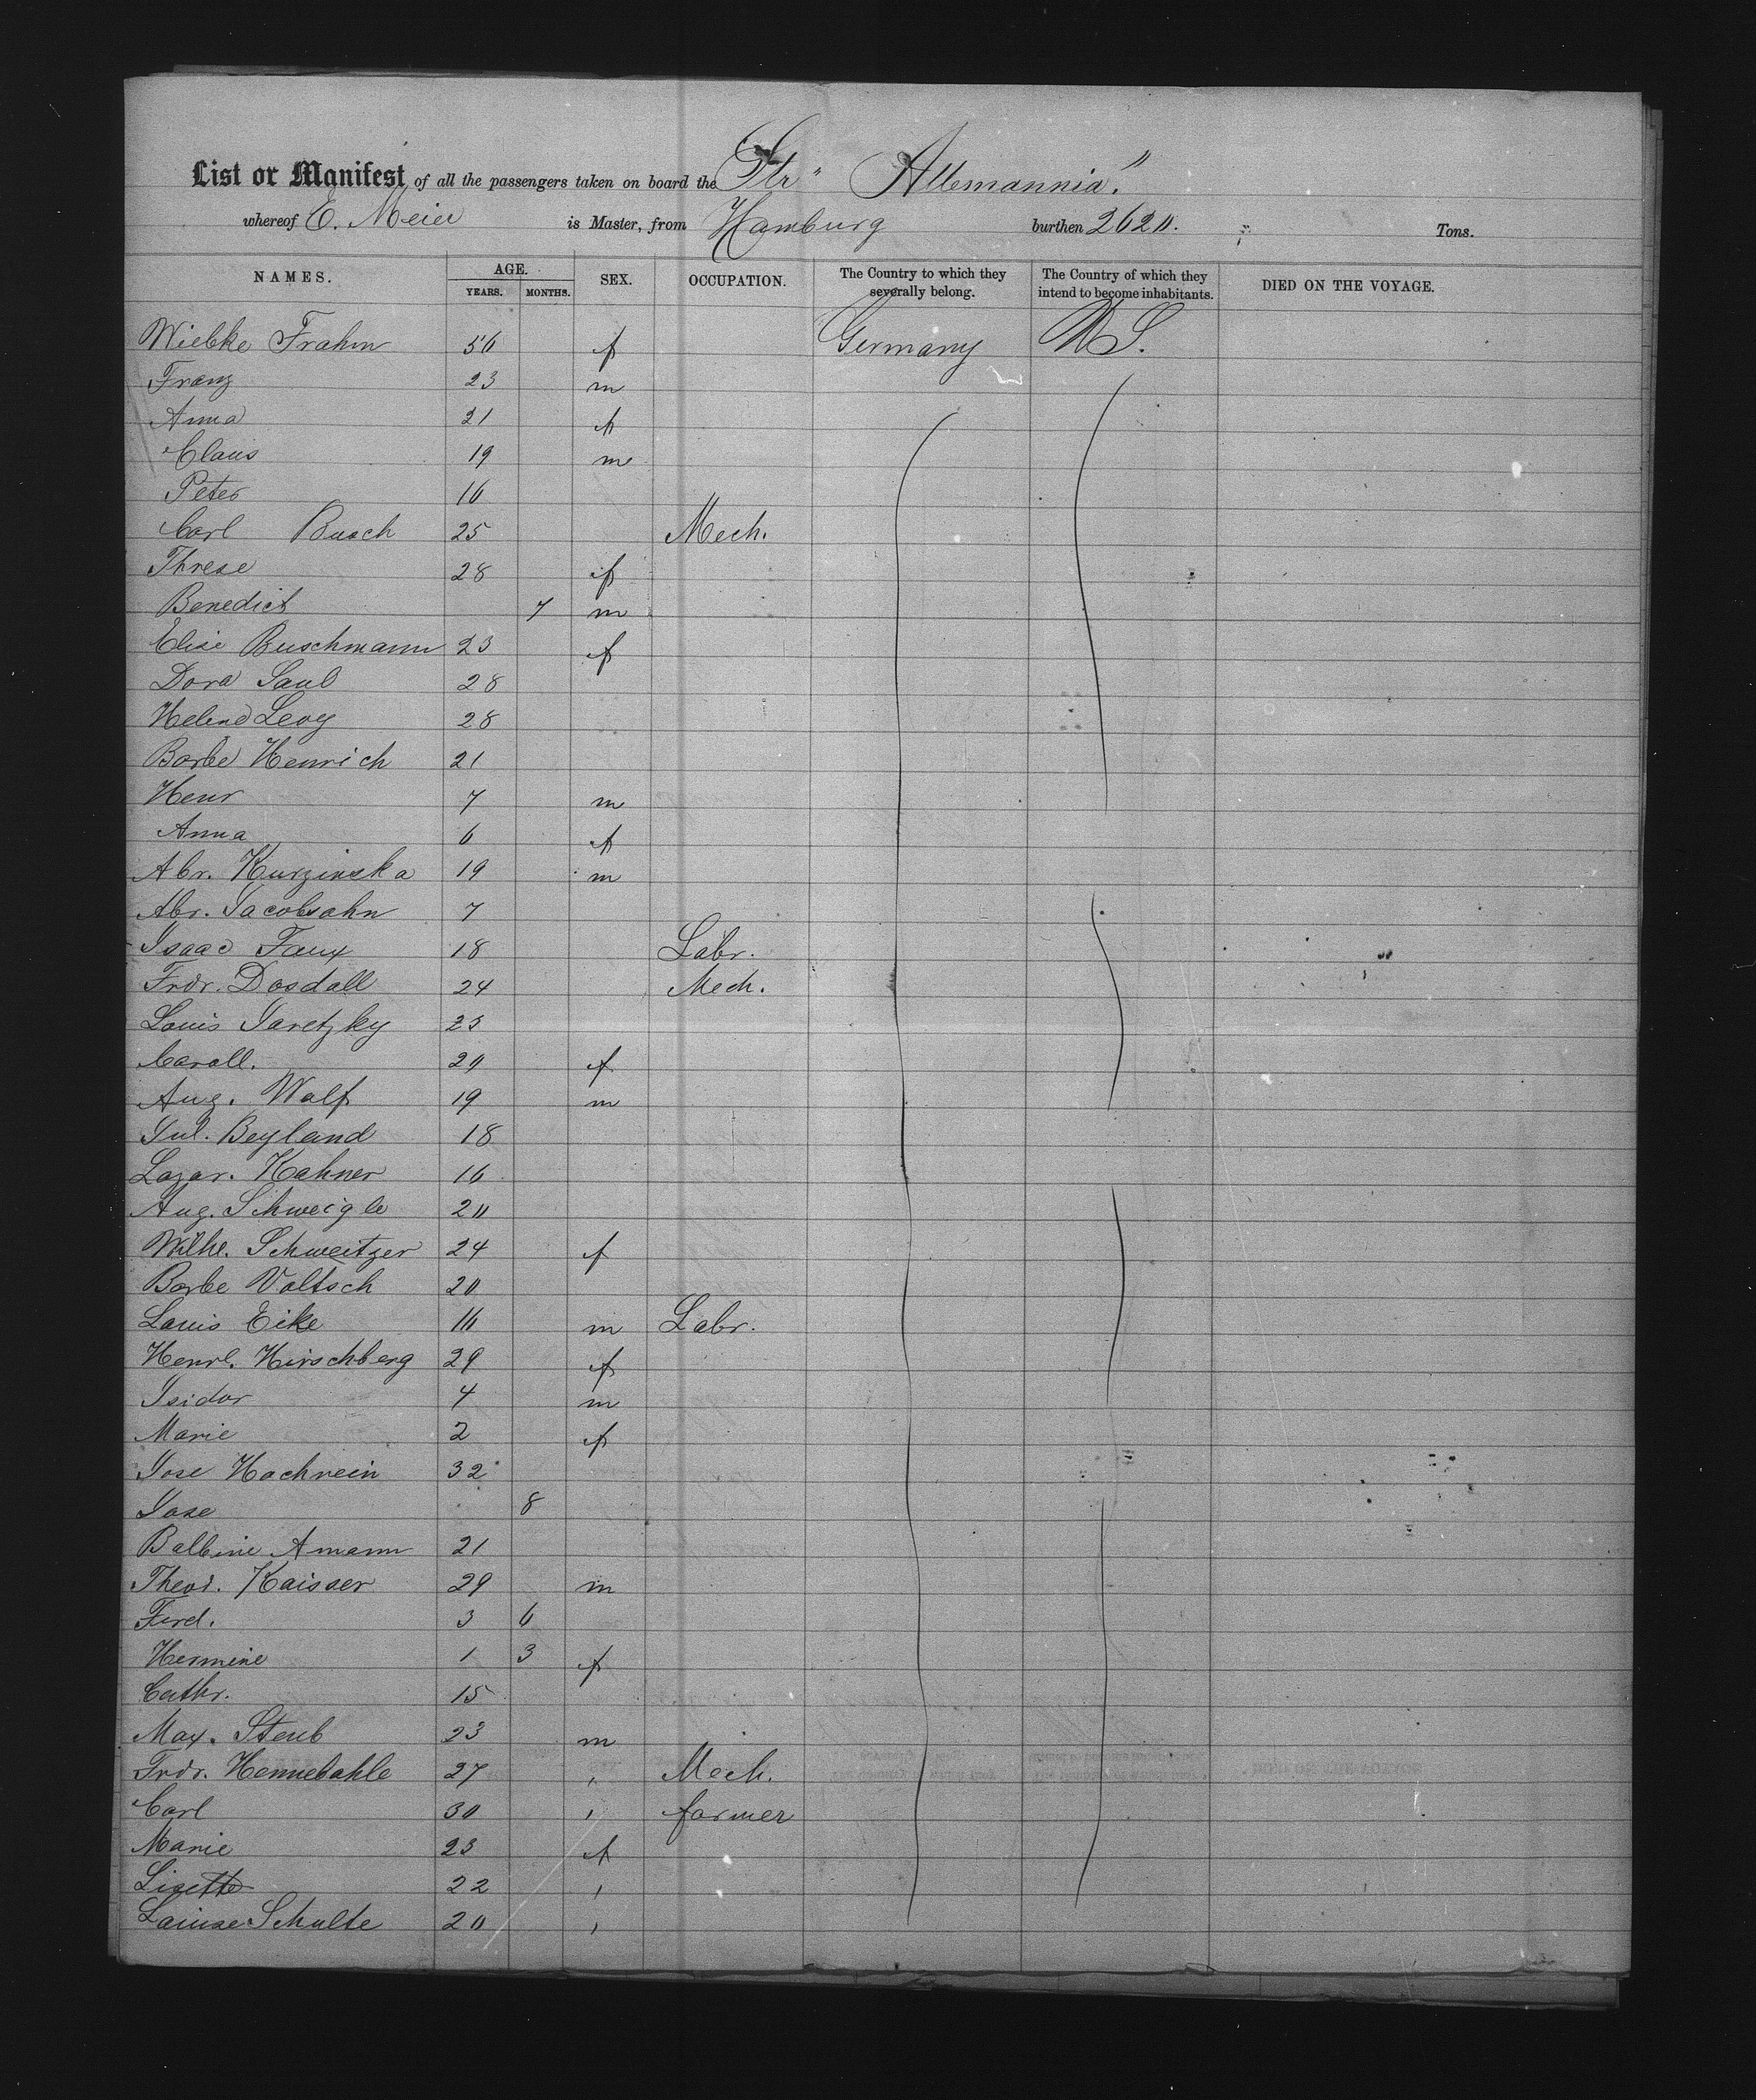 List or Manifest of all the passengers taken on board the Str "Allemannia"
whereof E. Meier is Master, from Hamburg burthen 2620. Tons.
NAMES. AGE. YEARS. MONTHS. SEX. OCCUPATION. The Country to which they severally belong. The Country of which they intend to become inhabitants. DIED ON THE VOYAGE.
Wiebke Frahm 56 f Germany US.
Franz 23 m
Anna 21 f
Claus 19 m
Peter 16
Carl Busch 25 Mech.
Threse 28 f
Benedict 7 m
Elise Buschmann 23 f
Dora Saul 28
Helene Levy 28
Barbe Henrich 21
Henr 7 m
Anna 6 f
Abr. Kurzinska 19 m
Abr. Jacobsohn 7
Isaac Faux 18 Labr.
Frdr. Dosdall 24 Mech.
Louis Jaretzky 23
Caroll. 20 f
Aug. Wolf 19 m
Jul. Beyland 18
Lazar. Kahner 16
Aug. Schweigle 20
Wilhe. Schweitzer 24 f
Barbe Voltsch 20
Louis Eike 16 m Labr.
Henrl. Hirschberg 29 f
Isidor 4 m
Marie 2 f
Jose Hochrein 32
Jose 8
Balbine Amann 21
Theod. Kaisser 29 m
Ferd. 3 6
Hermine 1 3 f
Cathr. 15
Max. Steub 23 m
Frdr. Hennebahle 27 " Mech.
Carl 30 " farmer
Marie 23 f
Lisette 22 "
Louise Schulte 20 "